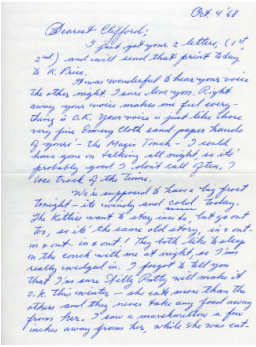 Oct 4 '68
Dearest Clifford;
I just got your 2 letters, (1st,
2nd) and will send that print today
to K. Price.
It was wonderful to hear your voice
the other night I sure love you. Right
away your voice makes me feel every-
thing is O.K. Your voice is just like those
very fine Emery Cloth sand paper hands
of yours - the Magic Touch - I could
have gone on talking all night so it's
probably good I don't call often, I
lose track of the time.
We're supposed to have a big frost
tonight - its windy and cold today.
The Kitties want to stay inside, but go out
too, so it's the same old story, in & out -
in & out - in & out! They both like to sleep
on the couch with me at night, so I'm
really wedged in. I forgot to tell you
that I'm sure Stilly Potty will make it
o.k. this winter - she eats more than the
others and they never take any food away
from her. I saw a marshmellow a few
inches away from her, while she was eat-